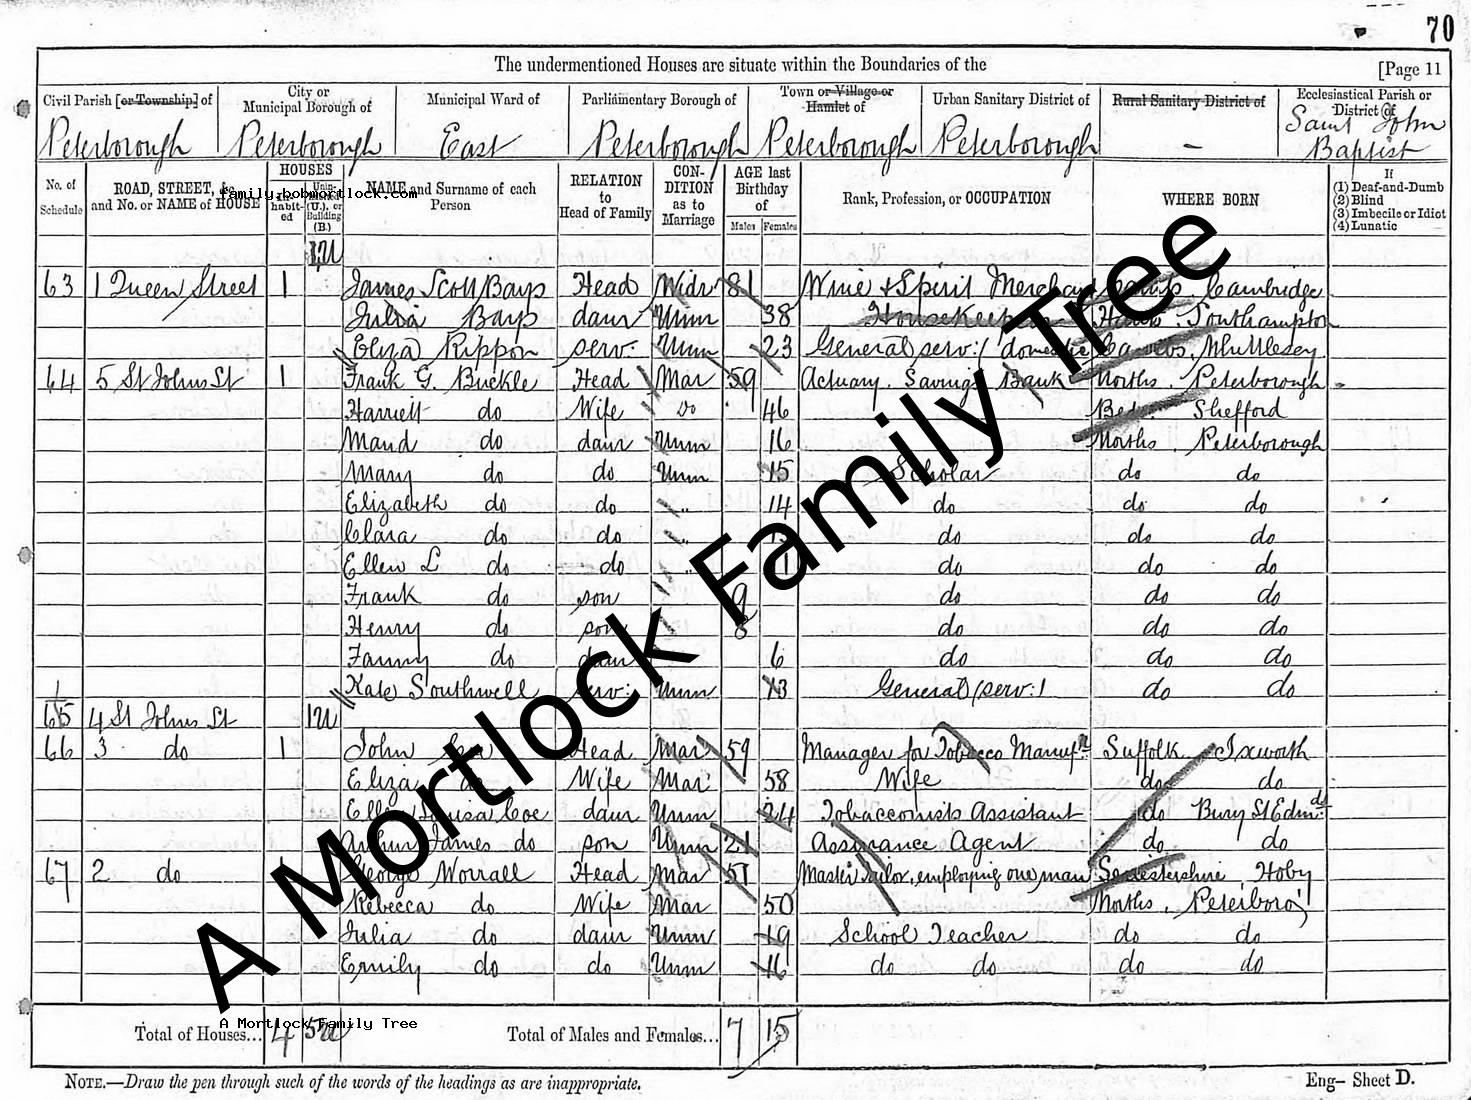 70
The undermentioned Houses are situate within the Boundaries of the [Page 11
Civil Parish [or Township] of City or Municipal Borough of Municipal Ward of Parliamentary Borough of Town or Village or Hamlet of Urban Sanitary District of Rural Sanitary District of Ecclesiastical Parish or District of
Peterborough Peterborough East Peterborough Peterborough Peterborough - Saint John Baptist
No. of Schedule ROAD, STREET, &c. and No. or NAME of HOUSE HOUSES In-habit-ed Unin-habited (U.), or Building (B.) NAME and Surname of each Person RELATION to Head of Family CON-DITION as to Marriage AGE last Birthday of Males Females Rank, Profession, or OCCUPATION WHERE BORN If (1) Deaf-and-Dumb (2) Blind (3) Imbecile or Idiot (4) Lunatic
family.bobmortlock.com
1U
63 1 Queen Street 1 James Scott Bays Head Widr 81 Wine & Spirit Merchant Cambs Cambridge
Julia Bays daur Unm 38 Housekeeper Hants. Southampton
Eliza Rippon serv: Unm 23 General serv:/ domestic Cambs. Whittlesey
64 5 St Johns St 1 Frank G. Buckle Head Mar 59 Actuary. Savings Bank Norths. Peterborough
Harriett do Wife do 46 Beds. Shefford
Maud do daur Unm 16 Norths. Peterborough
Mary do do Unm 15 Scholar do do
Elizabeth do do " 14 do do do
Clara do do " do do do
Ellen L do do " 11 do do do
Frank do son 9 do do do
Henry do son 8 do do do
Fanny do daur 6 do do do
Kate Southwell serv: Unm General (serv:) do do
65 4 St Johns St 1U
66 3 do 1 John Head Mar 59 Manager for Tobacco Manufr Suffolk Ixworth
Eliza do Wife Mar 58 Wife do do
Ellen Louisa Coe daur Unm 24 Tobacconists Assistant do Bury St Edmds
Arthur James do son Unm 21 Assurance Agent do do
67 2 do 1 George Worrall Head Mar 51 Master Tailor, employing one man Leicestershire, Hoby
Rebecca do Wife Mar 50 Norths. Peterboro'
Julia do daur Unm 19 School Teacher do do
Emily do do Unm 16 do do do do
A Mortlock Family Tree
A Mortlock Family Tree
Total of Houses... 4 Total of Males and Females... 7 15
NOTE.—Draw the pen through such of the words of the headings as are inappropriate.
Eng— Sheet D.